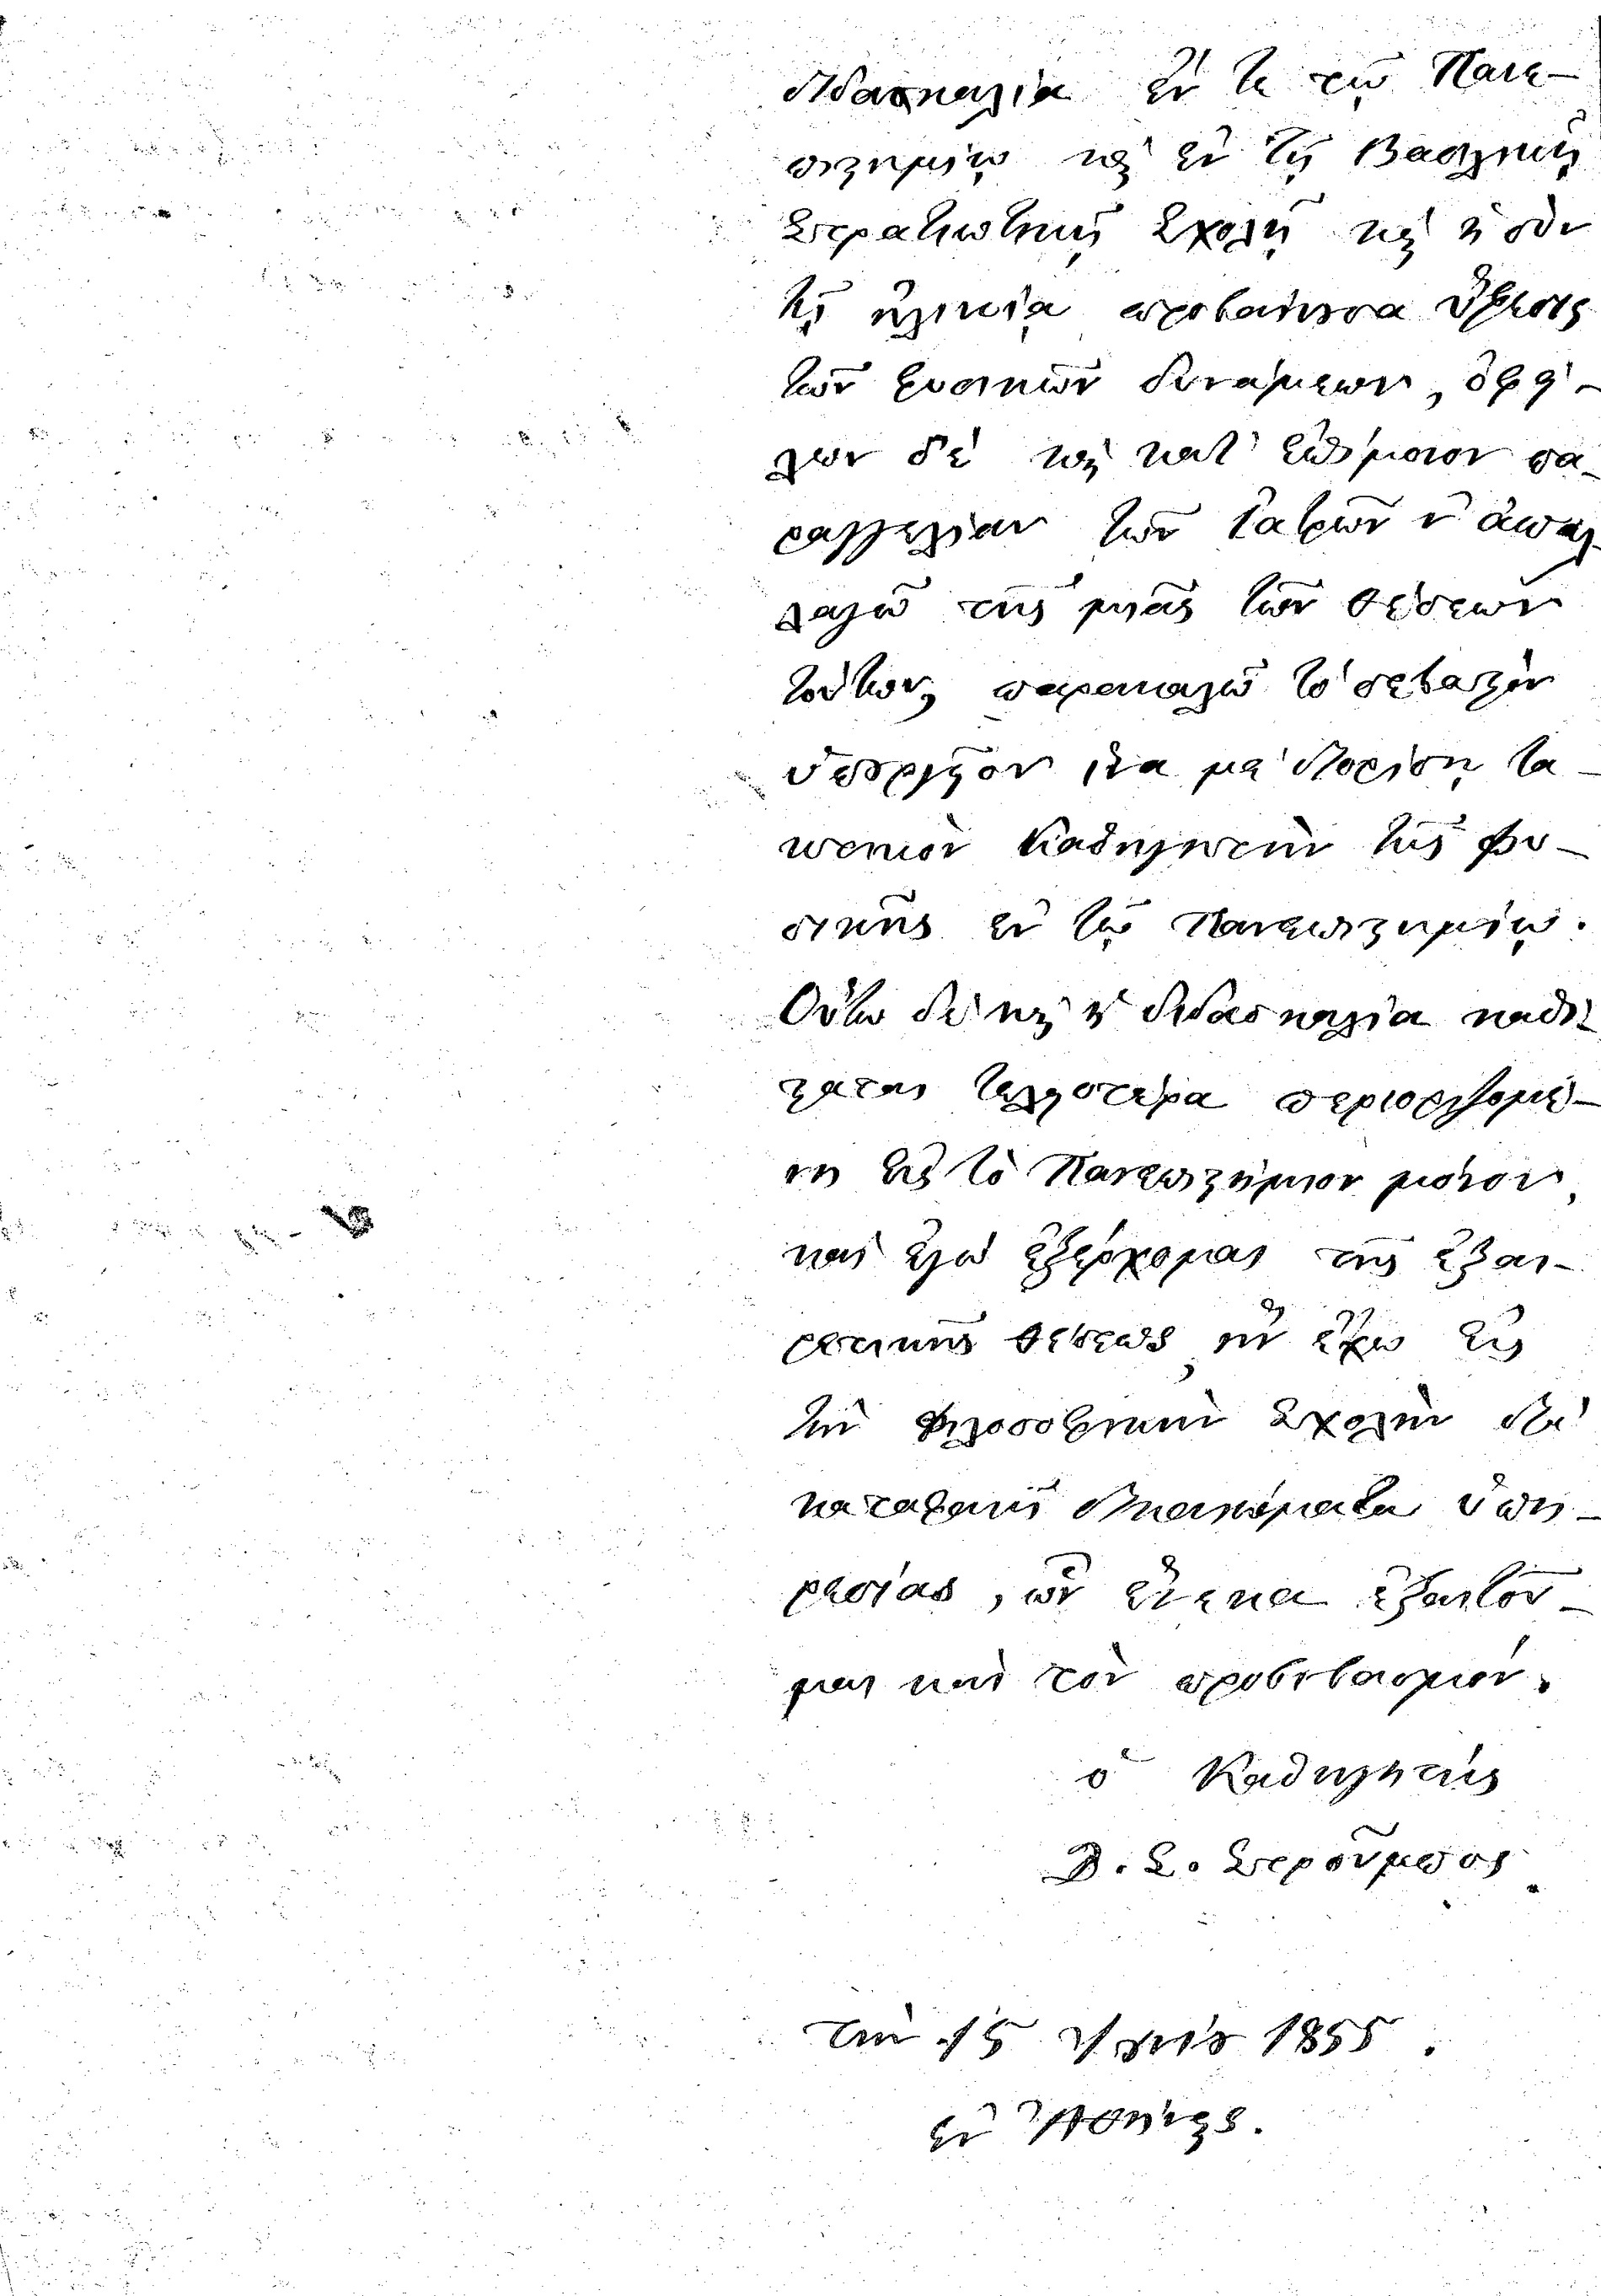 διδασκαλία ἔν τε τῷ Πανε-
πιστημίῳ καὶ ἐν τῇ Βασιλικῇ
Στρατιωτικῇ Σχολῇ καὶ ἡ σὺν
τῇ ἡλικίᾳ προβαίνουσα ὕφεσις
τῶν φυσικῶν δυνάμεων, ὀφεί-
λων δὲ καὶ κατ' ἐπίμονον πα-
ραγγελίαν τῶν ἰατρῶν ν' ἀπαλ-
λαγῶ τῆς μιᾶς τῶν θέσεων
τούτων, παρακαλῶ τὸ σεβαστὸν
ὑπουργεῖον ἵνα μὲ διορίσῃ τα-
κτικὸν Καθηγητὴν τῆς Φυ-
σικῆς ἐν τῷ Πανεπιστημίῳ.
Οὕτω δὲ καὶ ἡ διδασκαλία καθί-
σταται τελειοτέρα περιοριζομέ-
νη εἰς τὸ Πανεπιστήμιον μόνον,
καὶ ἐγὼ ἐξέρχομαι τῆς ἐξαι-
ρετικῆς θέσεως, ἣν ἔχω εἰς
τὴν Φιλοσοφικὴν Σχολὴν διὰ
καταφανῆ δικαιώματα ὑπη-
ρεσίας, ὧν ἕνεκα ἐξαιτοῦ-
μαι καὶ τὸν προβιβασμόν.
ὁ Καθηγητής
Δ. Σ. Στροῦμπος
τὴν 15 1855.
ἐν Ἀθήναις.